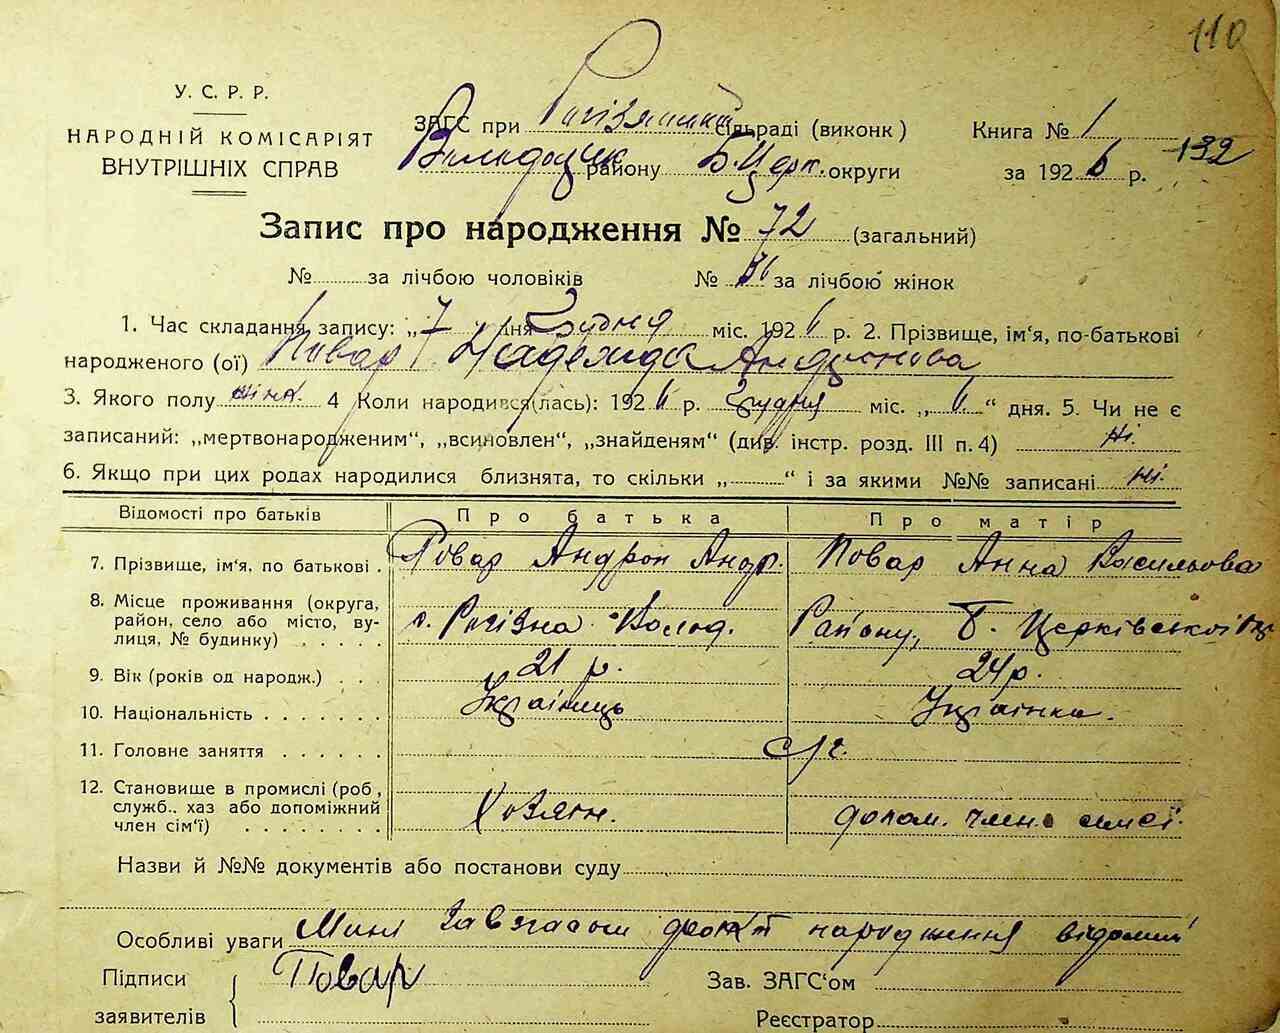 110
У. С. Р. Р.
НАРОДНІЙ КОМІСАРІЯТ
ВНУТРІШНІХ СПРАВ
ЗАГС при сільраді (виконк)
району Б. Церк. округи
Книга № 1
за 1926 р.
132
Запис про народження № 72 (загальний)
№ за лічбою чоловіків № 36 за лічбою жінок
1. Час складання запису: „7 дня Грудня міс. 1926 р. 2. Прізвище, ім‘я, по-батькові
народженого (ої) Повар Надежда Андронова
3. Якого полу жіна. 4 Коли народився(лась): 1926 р. Грудня міс. „6“ дня. 5. Чи не є
записаний: „мертвонародженим“, „всиновлен“, „знайденям“ (див. інстр. розд. III п. 4) Ні.
6. Якщо при цих родах народилися близнята, то скільки „ “ і за якими №№ записані ні.
Відомості про батьків Про батька Про матір
7. Прізвище, ім‘я, по батькові . Повар Андрон Андр. Повар Анна Васильова
8. Місце проживання (округа,
район, село або місто, ву-
лиця, № будинку) . . . . . с. Рогізна Волод. Району, Б. Церківської
9. Вік (років од народж.) . . 21 р. 24 р.
10. Національність . . . . . . . Українець Українка.
11. Головне заняття . . . . . .
12. Становище в промислі (роб,
служб., хаз або допоміжний
член сім‘ї) . . . . . . . . Хозяін. допом. член сімєї.
Назви й №№ документів або постанови суду
Особливі уваги Мині Завзагсом факт народження відомий
Підписи Повар Зав. ЗАГС‘ом
заявителів Реєстратор